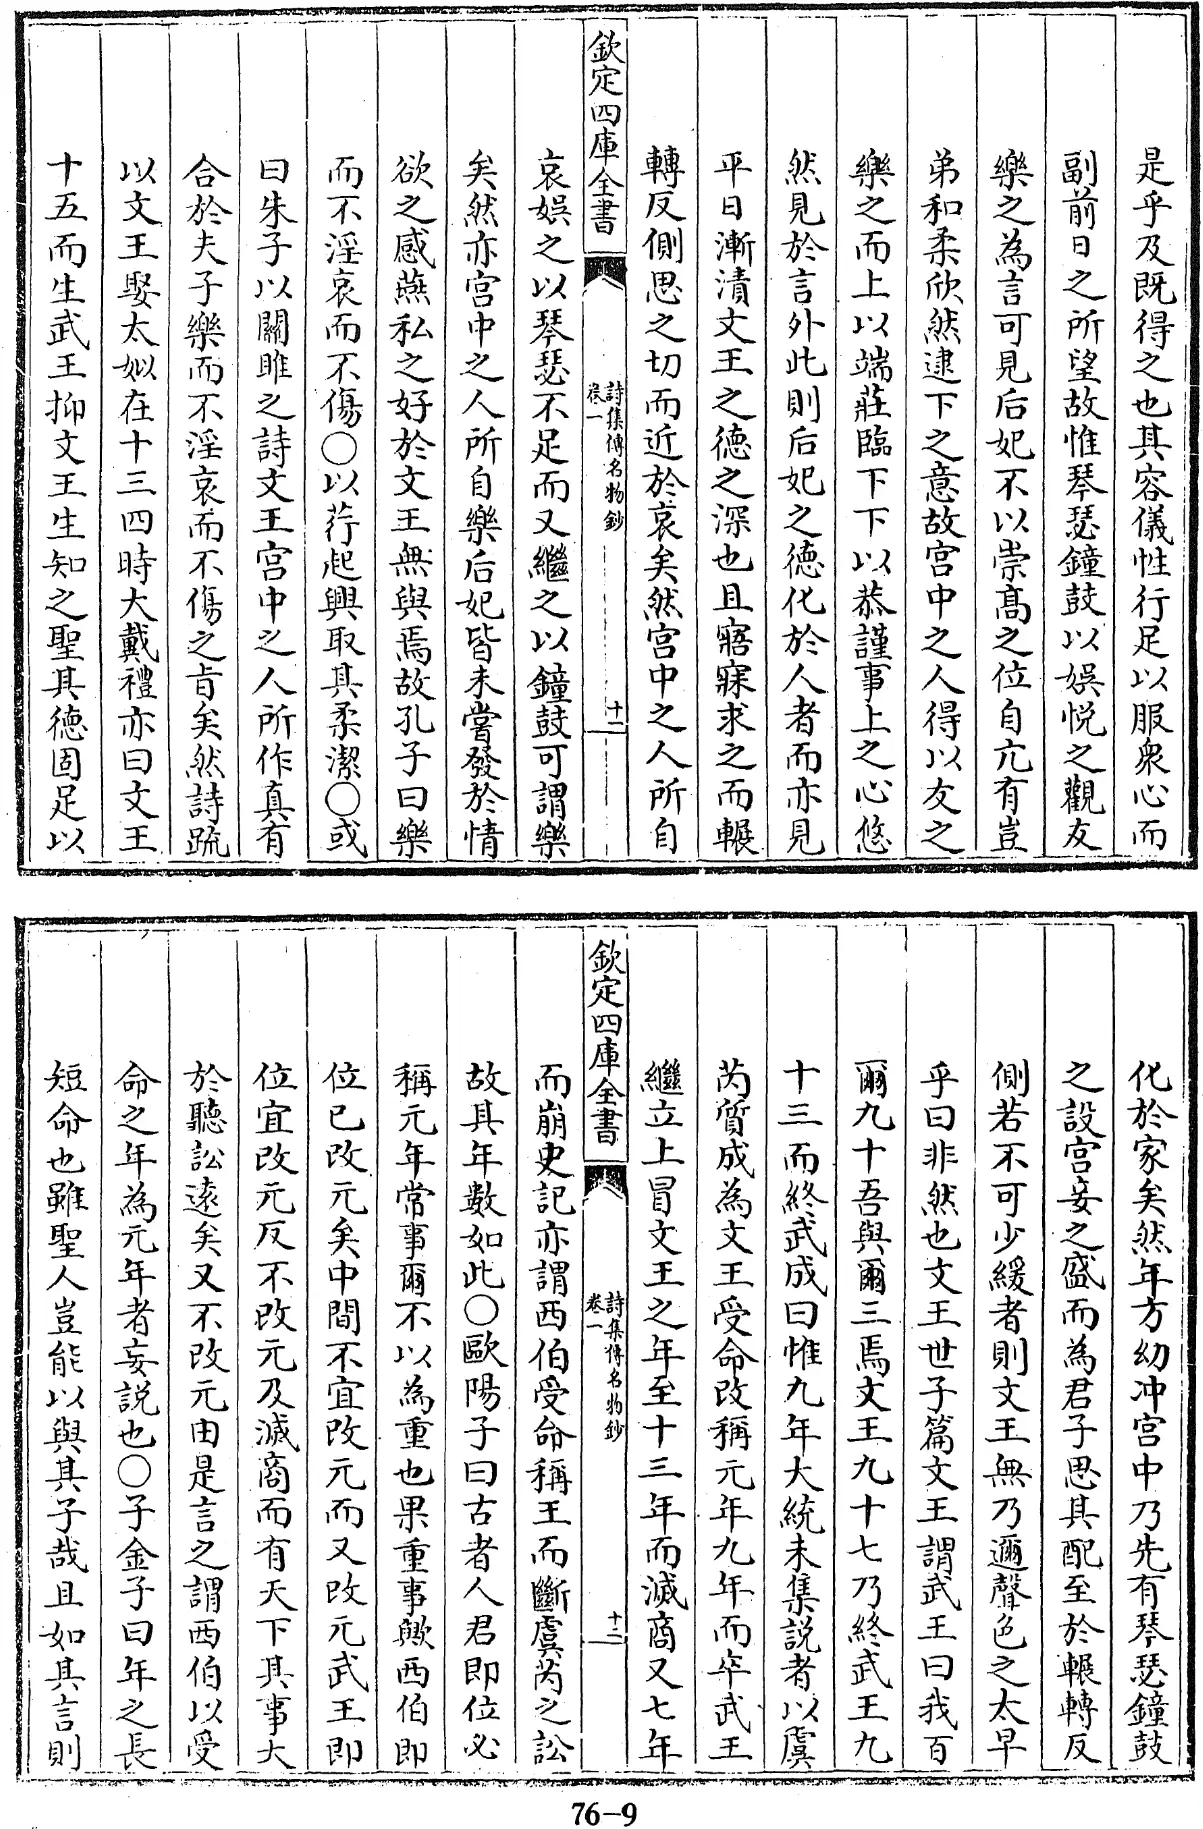 是乎及既得之也其容儀性行足以服衆心而
副前日之所望故惟琴瑟鐘鼓以娯悦之觀友
樂之為言可見后妃不以崇髙之位自亢有豈
弟和柔欣然逮下之意故宫中之人得以友之
樂之而上以端莊臨下下以恭謹事上之心悠
然見於言外此則后妃之德化於人者而亦見
平日漸漬文王之德之深也且寤寐求之而輾
轉反側思之切而近於哀矣然宫中之人所自
欽定四庫全書
詩集傳名物鈔
卷一
十一
哀娯之以琴瑟不足而又繼之以鐘鼓可謂樂
矣然亦宫中之人所自樂后妃皆未嘗發於情
欲之感燕私之好於文王無與焉故孔子曰樂
而不淫哀而不傷○以荇起興取其柔潔○或
曰朱子以關雎之詩文王宫中之人所作真有
合於夫子樂而不淫哀而不傷之旨矣然詩疏
以文王娶太姒在十三四時大戴禮亦曰文王
十五而生武王抑文王生知之聖其德固足以
化於家矣然年方幼冲宫中乃先有琴瑟鐘鼓
之設宫妾之盛而為君子思其配至於輾轉反
側若不可少緩者則文王無乃邇聲色之太早
乎曰非然也文王世子篇文王謂武王曰我百
爾九十吾與爾三焉文王九十七乃終武王九
十三而終武成曰惟九年大統未集説者以虞
芮質成為文王受命改稱元年九年而卒武王
繼立上冒文王之年至十三年而滅商又七年
欽定四庫全書
詩集傳名物鈔
卷一
十二
而崩史記亦謂西伯受命稱王而斷虞芮之訟
故其年數如此○歐陽子曰古者人君即位必
稱元年常事爾不以為重也果重事歟西伯即
位已改元矣中間不宜改元而又改元武王即
位宜改元反不改元及滅商而有天下其事大
於聽訟遠矣又不改元由是言之謂西伯以受
命之年為元年者妄説也○子金子曰年之長
短命也雖聖人豈能以與其子哉且如其言則
76-9